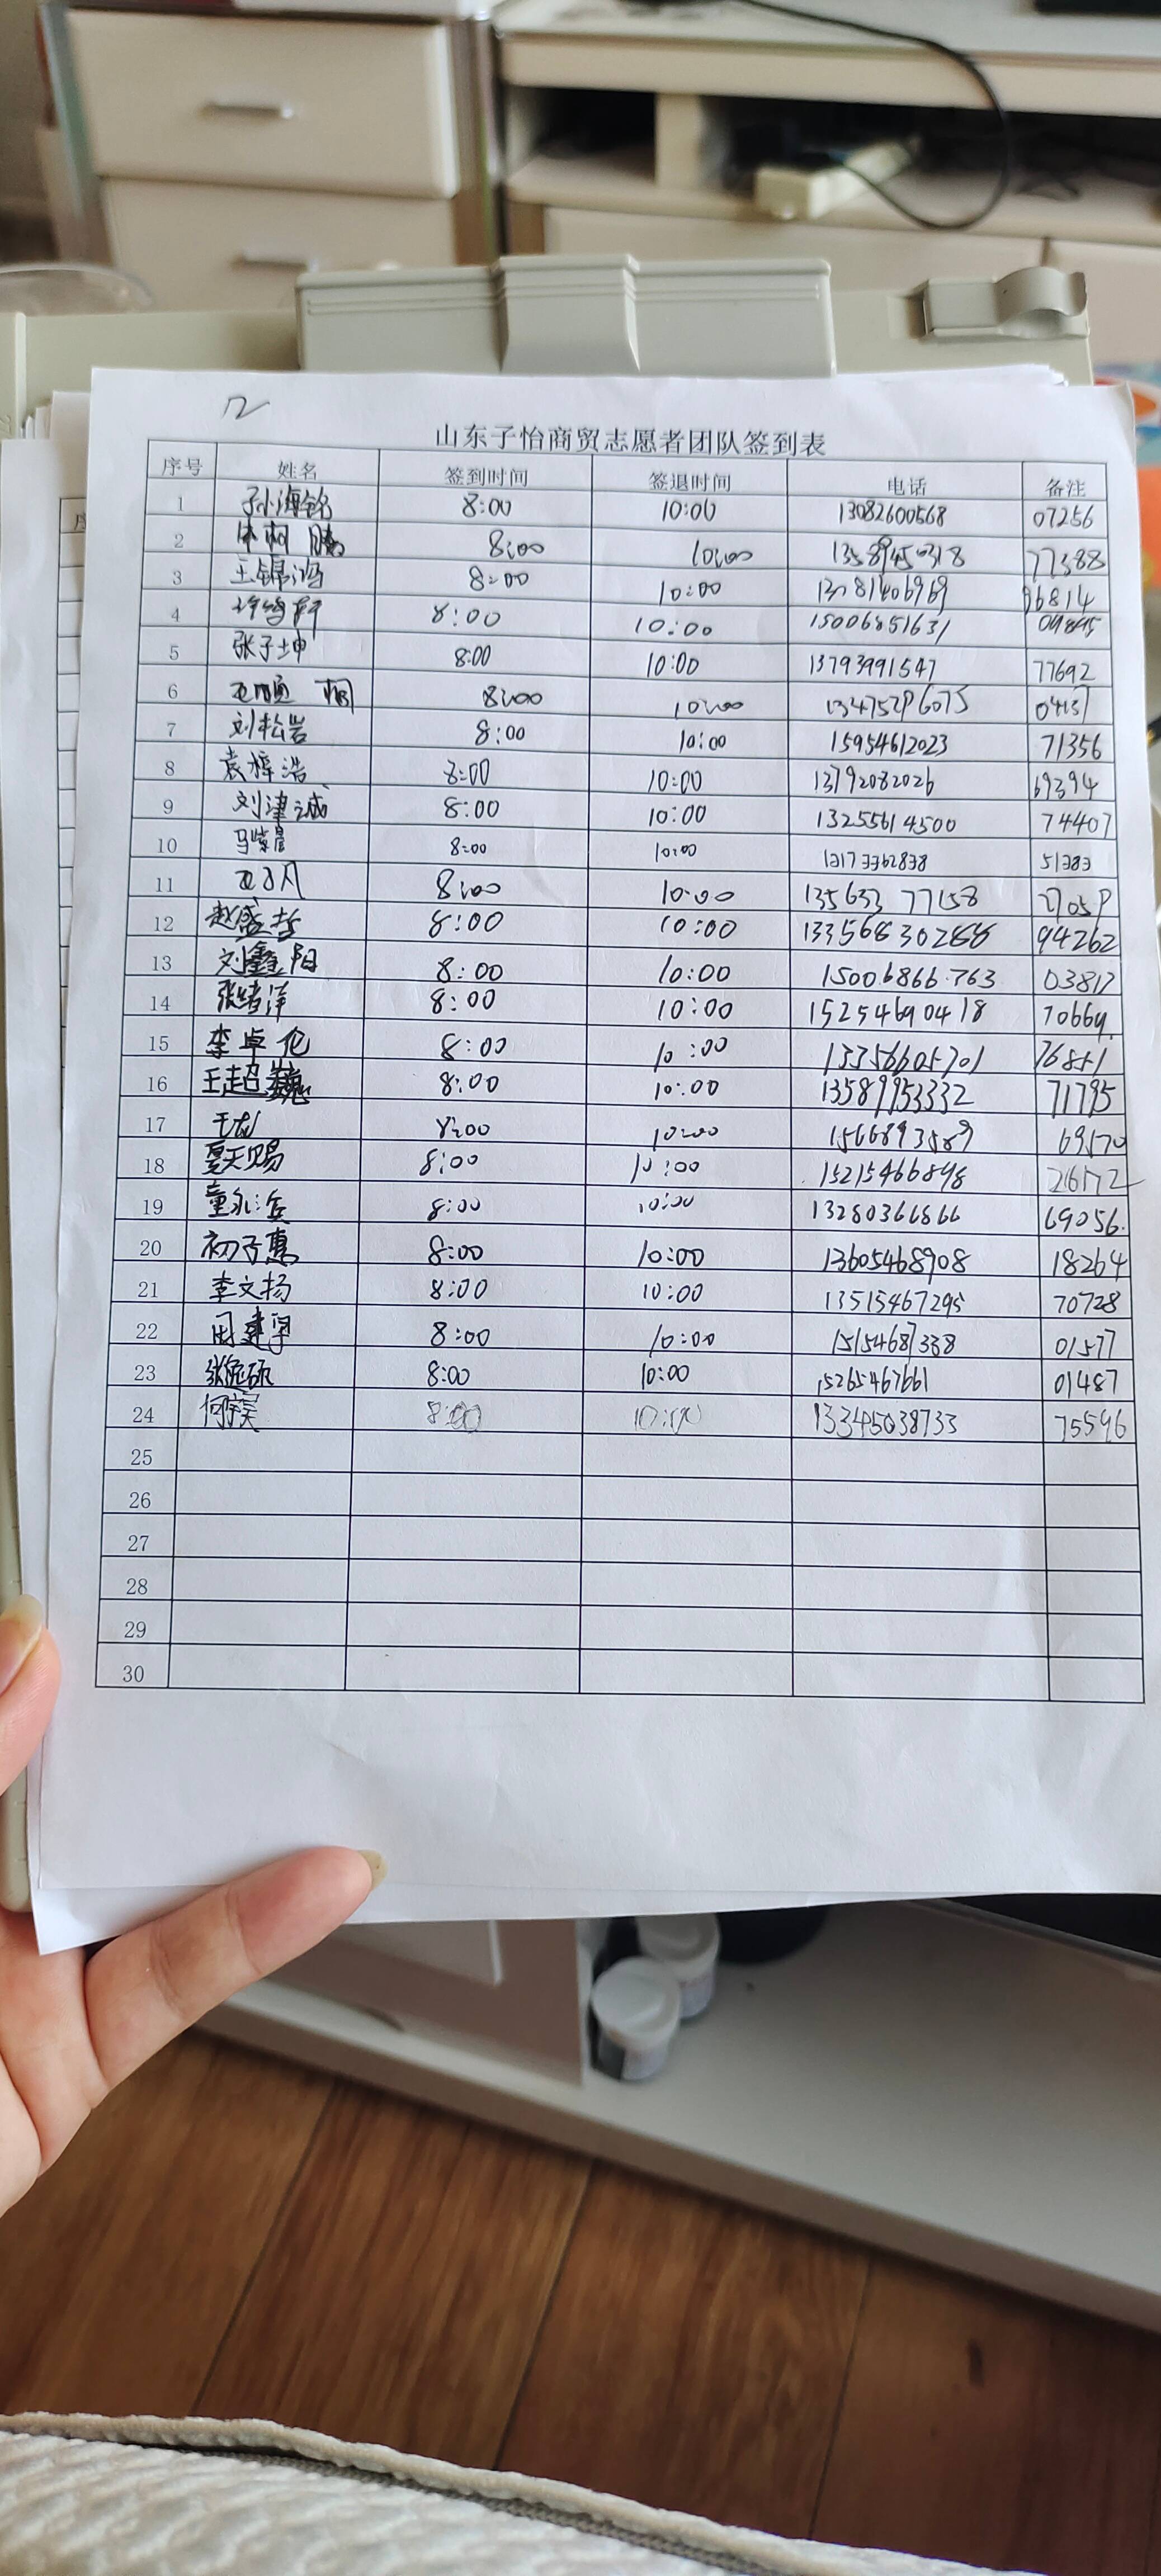 山东子怡商贸志愿者团队签到表
序号 姓名 签到时间 签退时间 电话 备注
1 孙海铭 8:00 10:00 13082600568 07256
2 8:00 10:00 13589450318 77388
3 王锦鸿 8:00 10:00
4 8:00 10:00 15006851631
5 张子坤 8:00 10:00 13793991547 77692
6 8:00 10:00
7 刘松岩 8:00 10:00 15954612023 71356
8 袁梓浩 8:00 10:00 13792082026 69394
9 刘津诚 8:00 10:00 13255614500 74407
10 8:00 10:00 13173362838 51383
11 8:00 10:00 13563377158
12 赵盛哲 8:00 10:00 13356830288 94262
13 刘鑫阳 8:00 10:00 15006866763 03817
14 张绪洋 8:00 10:00 15254690418 70669
15 李卓伦 8:00 10:00 13356605701 76851
16 王超巍 8:00 10:00 13589953332 71795
17 8:00 10:00 1566893589 69570
18 夏天赐 8:00 10:00 15215466898 26172
19 童永 8:00 10:00 13280366866 69056
20 初子惠 8:00 10:00 13605468908 18264
21 李文扬 8:00 10:00 13515467295 70728
22 田建 8:00 10:00 15154687338 01577
23 张逸硕 8:00 10:00 15265467661 01487
24 何昊 8:00 10:00 13345038733 75596
25
26
27
28
29
30